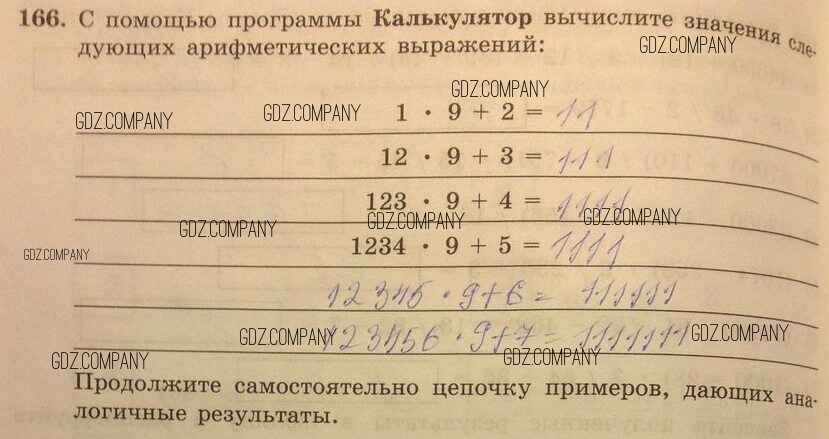 166. С помощью программы Калькулятор вычислите значения сле-
дующих арифметических выражений:
GDZ.COMPANY
GDZ.COMPANY
GDZ.COMPANY
GDZ.COMPANY
1 · 9 + 2 = 11
GDZ.COMPANY
12 · 9 + 3 = 111
123 · 9 + 4 = 1111
GDZ.COMPANY
GDZ.COMPANY
GDZ.COMPANY
1234 · 9 + 5 = 1111
GDZ.COMPANY
12345 · 9+6= 111111
123456 · 9+7= 1111111
GDZ.COMPANY
GDZ.COMPANY
GDZ.COMPANY
GDZ.COMPANY
Продолжите самостоятельно цепочку примеров, дающих ана-
логичные результаты.